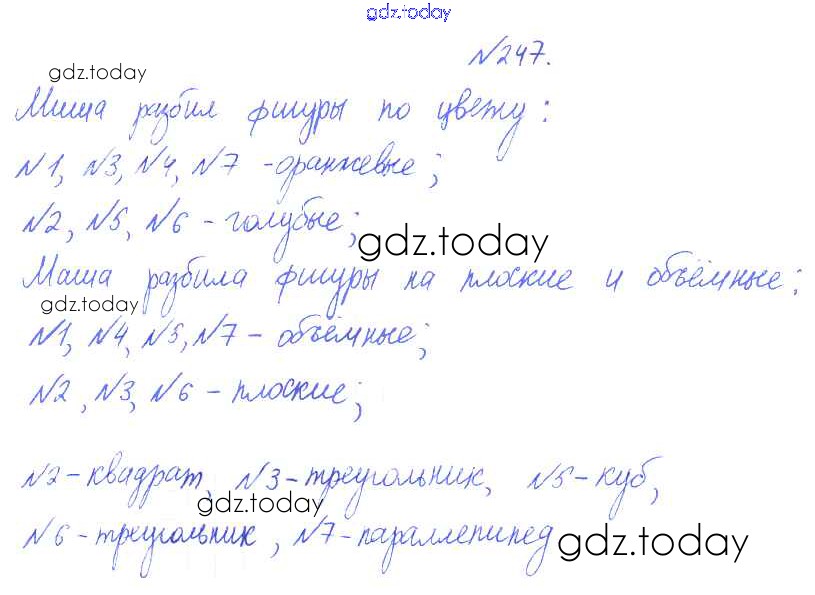 gdz.today
№247.
gdz.today
Миша разбил фигуры по цвету:
№1, №3, №4, №7 - оранжевые;
№2, №5, №6 - голубые;
gdz.today
Маша разбила фигуры на плоские и объёмные:
gdz.today
№1, №4, №5, №7 - объёмные;
№2, №3, №6 - плоские;
№2 - квадрат, №3 - треугольник, №5 - куб,
gdz.today
№6 - треугольник, №7 - параллепипед
gdz.today